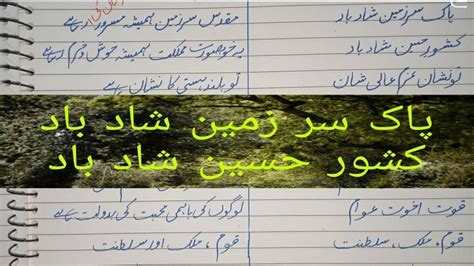 پاک سرزمین شاد باد مقدس سرزمین ہمیشہ مسرور رہے
کشور حسین شاد باد یہ خوبصورت مملکت ہمیشہ خوش و خرم رہے
تو نشان عزم عالی شان تو بلند ہستی کا نشان ہے
پاک سر زمین شاد باد
کشور حسین شاد باد
قوت اخوت عوام لوگوں کی باہمی محبت کی بدولت ہے
قوم، ملک، سلطنت قوم، ملک اور سلطنت